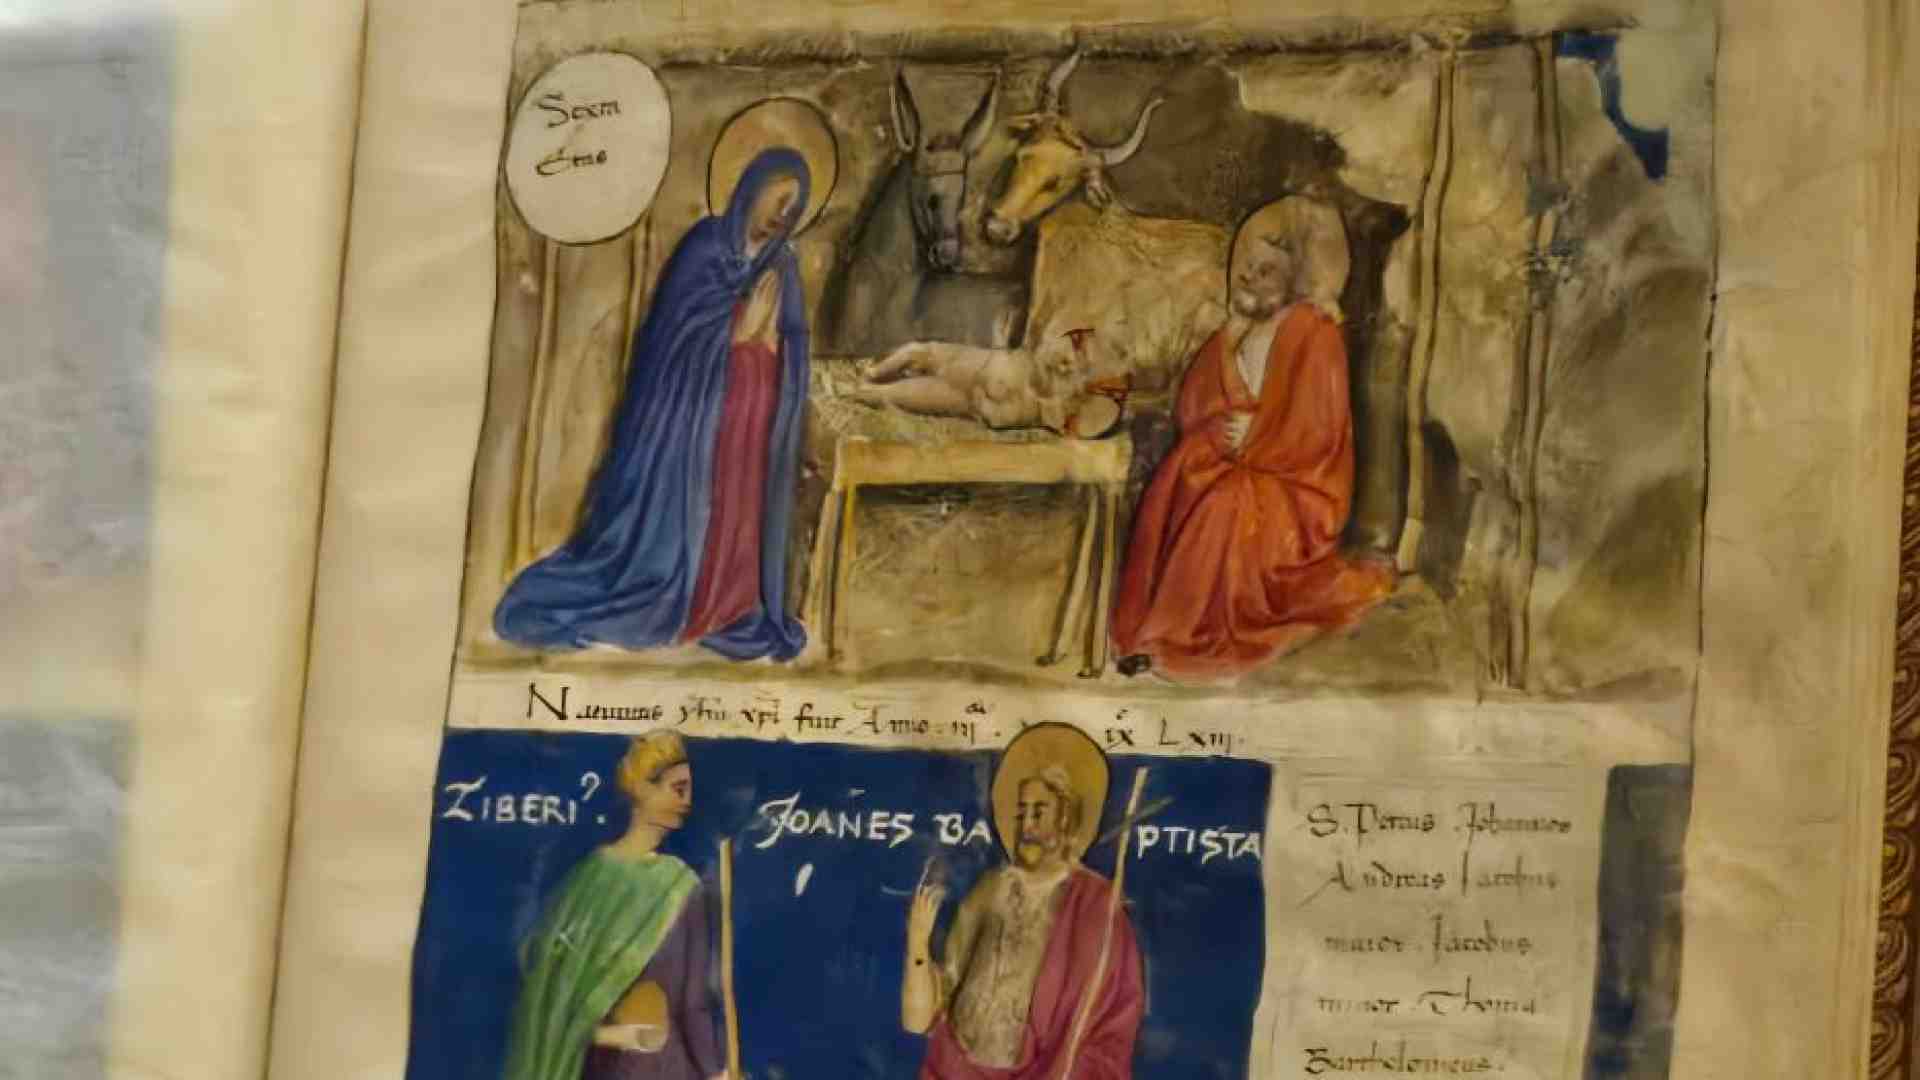 Sexta
Etas
Natiuitas yhu xpi fuit Anno · iii
ix LXIII.
ZIBERI?.
JOANES BA
PTISTA
S. Petrus Johannes
Andreas Jacobus
maior. Jacobus
minor. Thoma
Bartholomeus.